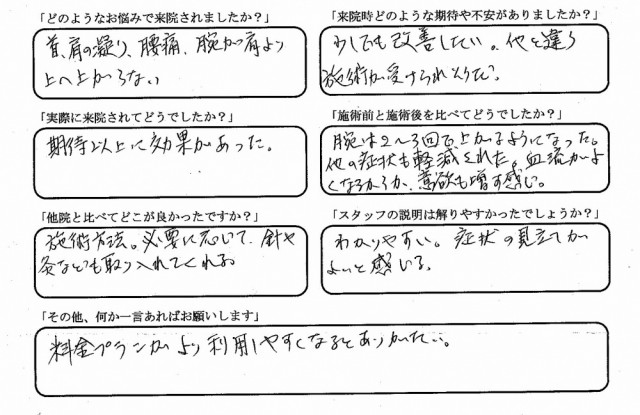 「どのようなお悩みで来院されましたか？」
首、肩の凝り、腰痛、腕が肩より
上へ上がらない
「来院時どのような期待や不安がありましたか？」
少しでも改善したい。他と違う
施術が受けられそうだ。
「実際に来院されてどうでしたか？」
期待以上に効果があった。
「施術前と施術後を比べてどうでしたか？」
腕は2〜3回で上がるようになった。
他の症状も軽減された。血流がよ
くなるからか、意欲も増す感じ。
「他院と比べてどこが良かったですか？」
施術方法。必要に応じて、針や
灸なども取り入れてくれる
「スタッフの説明は解りやすかったでしょうか？」
わかりやすい。症状の見立てが
よいと感じる。
「その他、何か一言あればお願いします」
料金プランがより利用しやすくなるとありがたい。